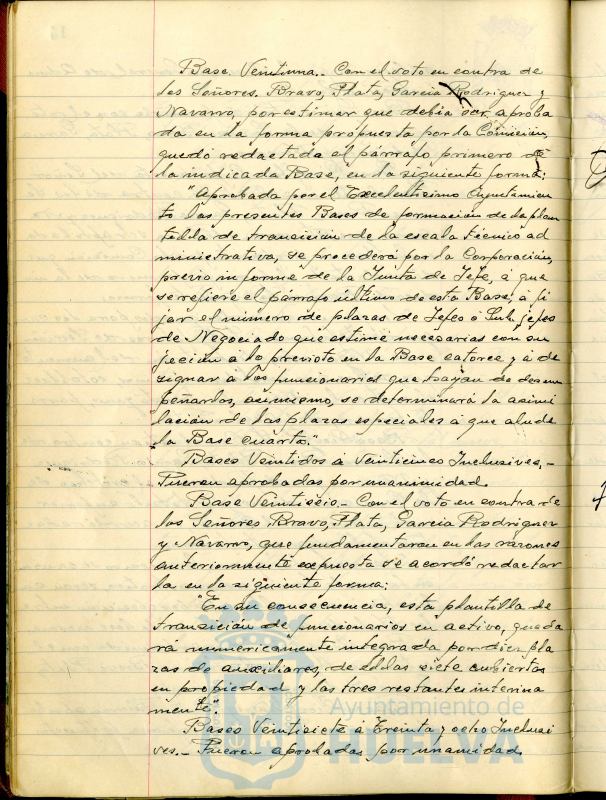 Base Veintiuna.. Con el voto en contra de
los Señores. Bravo, Plata, Garcia Rodriguez y
Navarro, por estimar que debia ser aproba
da en la forma propuesta por la Comision,
quedó redactada el párrafo primero de
la indicada Base, en la siguiente forma:
"Aprobada por el Excelentisimo Ayuntamien
to las presentes Bases de formación de la plan
tilla de transición de la escala técnico ad
ministrativa, se procederá por la Corporación,
previo informe de la Junta de Jefe, á que
se refiere el párrafo último de esta Base, á fi
jar el número de plazas de Jefes ó Sub-jefes
de Negociado que estime necesarias con su
jeción á lo previsto en la Base catorce y á de
signar á los funcionarios que hayan de desem
peñarlos, asimismo, se determinará la asimi
lación de las plazas especiales á que alude
la Base cuarta."
Bases Veintidos á Veinticinco Inclusives,-
Fueron aprobadas por unanimidad.
Base Veintiseis.- Con el voto en contra de
los Señores Bravo, Plata, Garcia Rodriguez
y Navarro, que fundamentaron en las razones
anteriormente expuesta se acordó redactar
la en la siguiente forma:
"En su consecuencia, esta plantilla de
transición de funcionarios en activo, queda
rá numericamente integrada por diez pla
zas de auxiliares, de ellas siete cubiertas
en propiedad y las tres restantes interina
mente".
Bases Veintisiete á Treinta y ocho Inclusi
ves.- Fueron aprobadas por unanimidad.
Ayuntamiento de
HUELVA